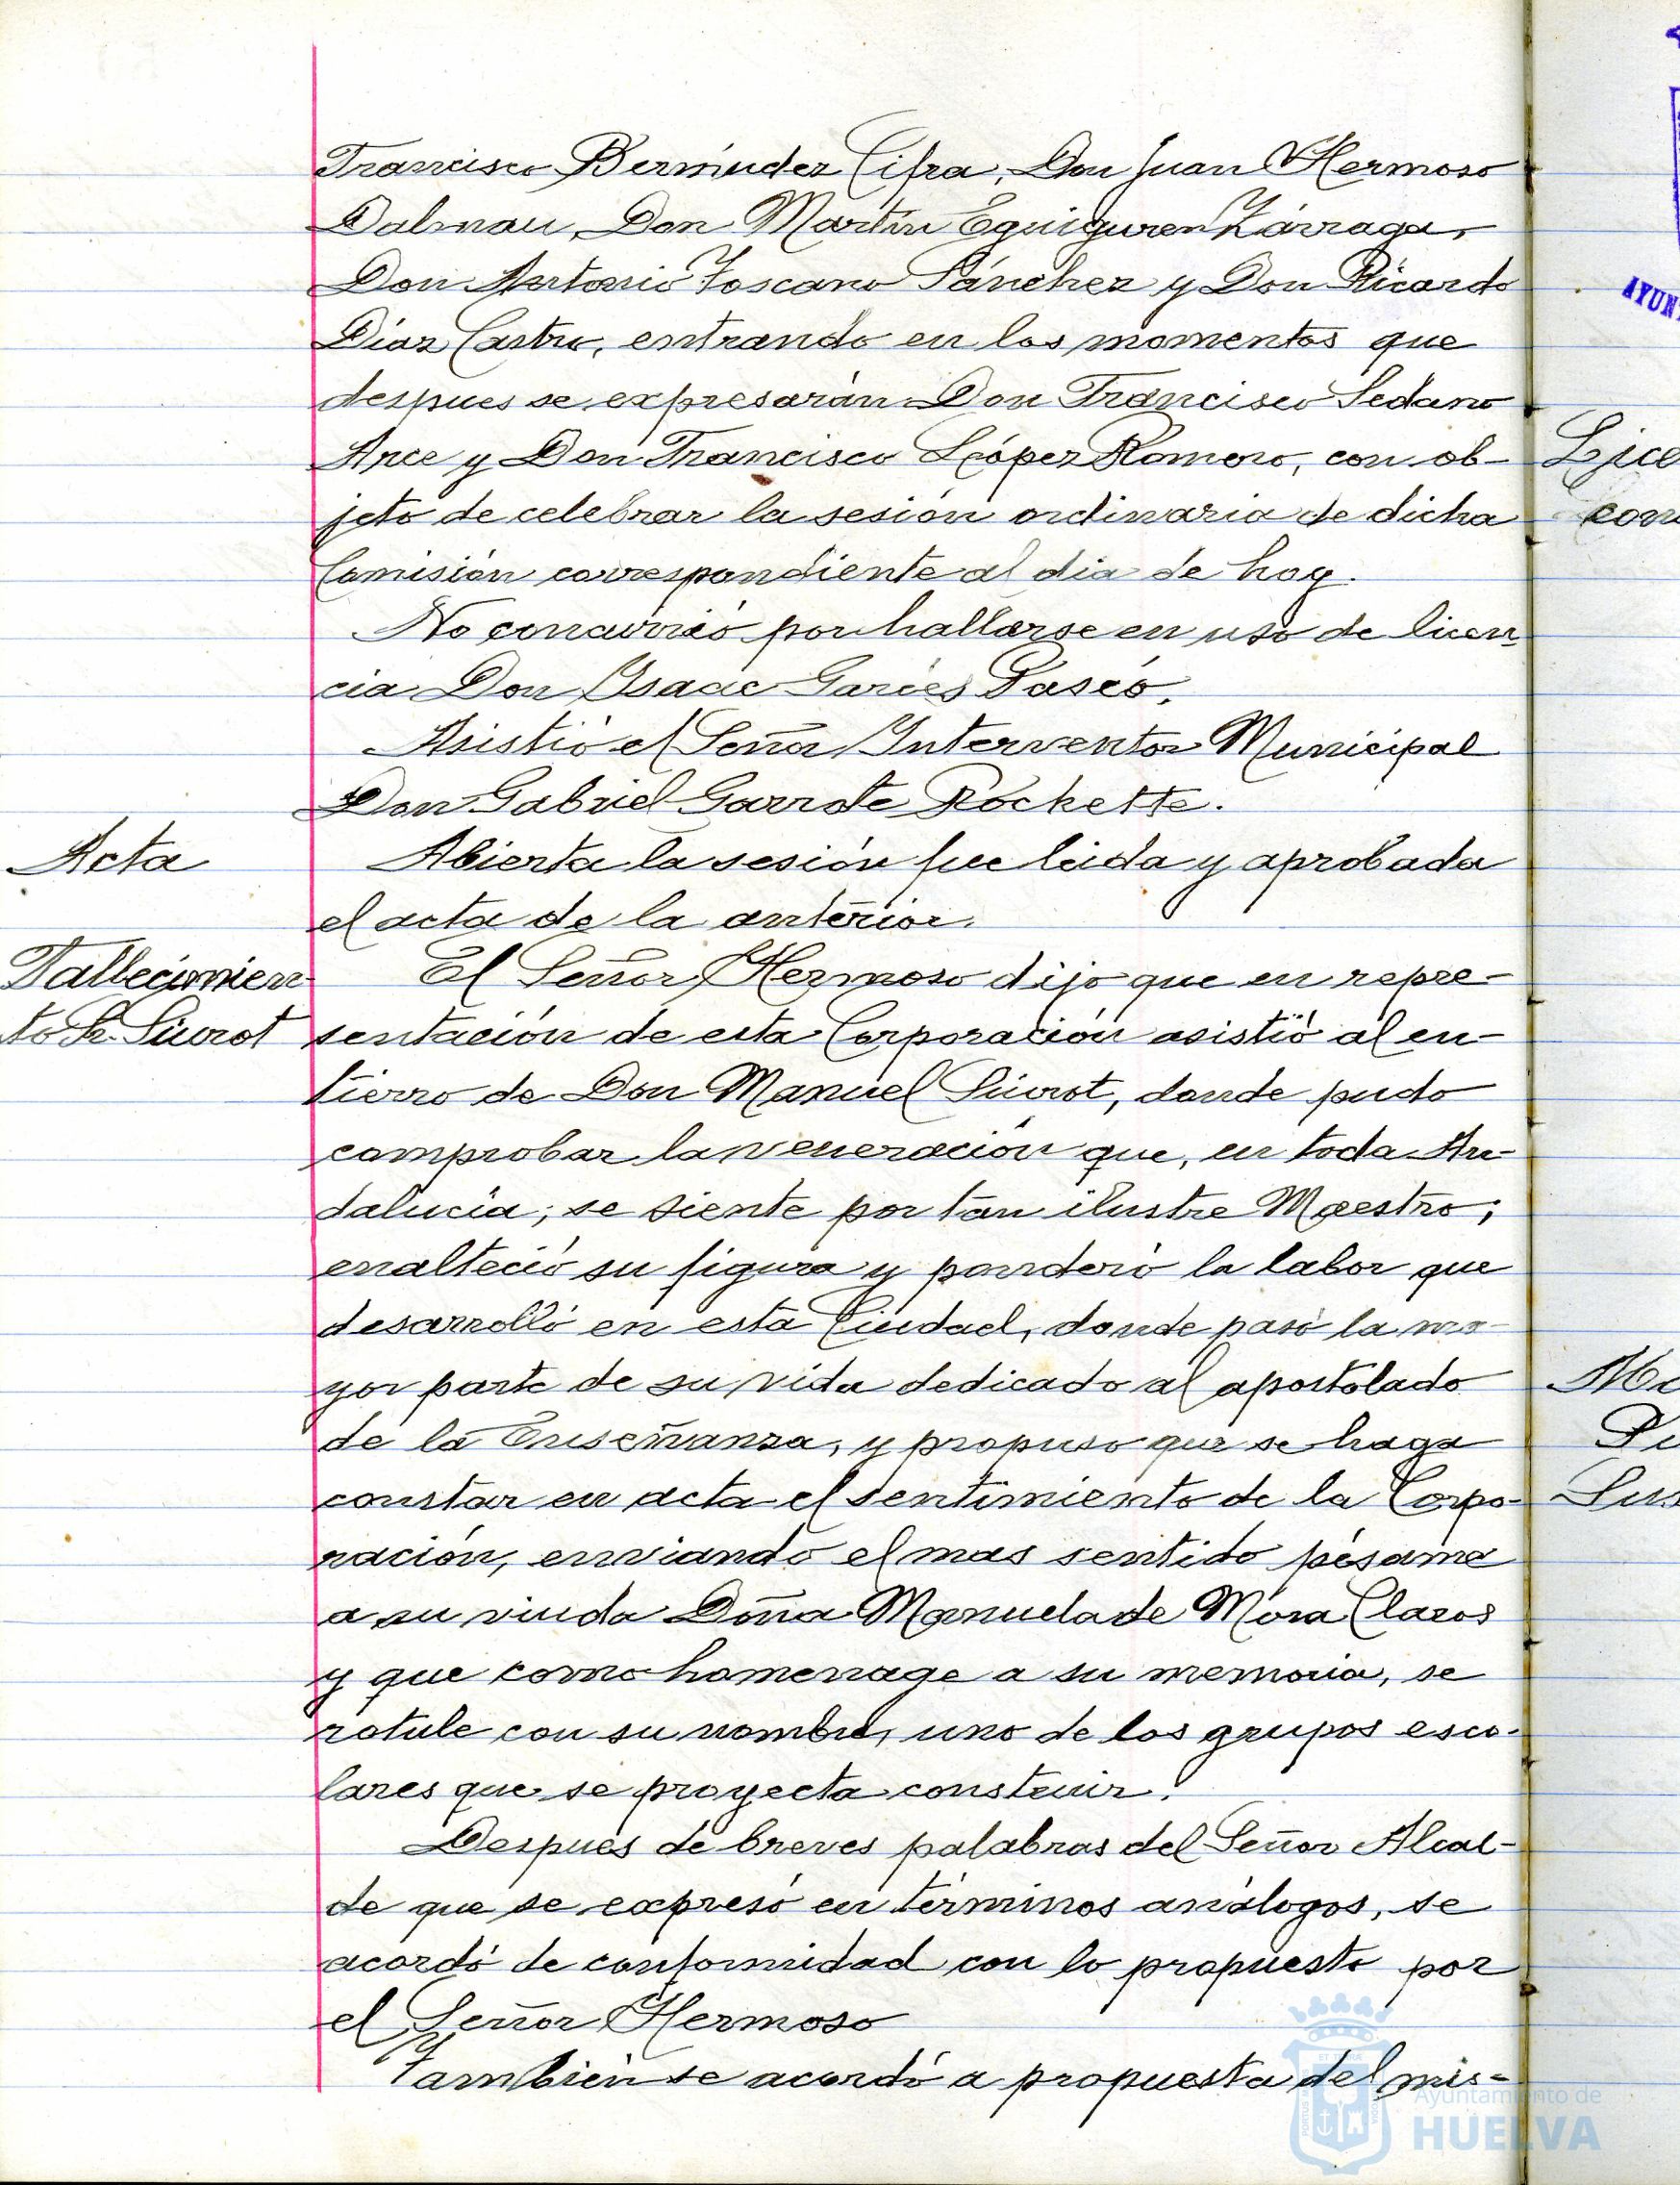 Francisco Bermúdez Cifra, Don Juan Hermoso
Dalmau, Don Martín Eguiguren Zárraga,
Don Antonio Toscano Sánchez y Don Ricardo
Díaz Castro, entrando en los momentos que
despues se expresarán Don Francisco Sedano
Arce y Don Francisco López Romero, con ob-
jeto de celebrar la sesión ordinaria de dicha
Comisión correspondiente al dia de hoy.
No concurrió por hallarse en uso de licen-
cia Don Isaac Garcés Paseó.
Asistió el Señor Interventor Municipal
Don Gabriel Garrote Rockette.
Acta
Abierta la sesión fue leida y aprobada
el acta de la anterior.
Fallecimien-
to Sr. Siurot
El Señor Hermoso dijo que en repre-
sentación de esta Corporación asistió al en-
tierro de Don Manuel Siurot, donde pudo
comprobar la veneración que, en toda An-
dalucía; se siente por tan ilustre Maestro;
enalteció su figura y ponderó la labor que
desarrolló en esta Ciudad, donde pasó la ma-
yor parte de su vida dedicado al apostolado
de la Enseñanza, y propuso que se haga
constar en acta el sentimiento de la Corpo-
ración, enviando el mas sentido pésame
a su viuda Doña Manuela de Mora Claros
y que como homenage a su memoria, se
rotule con su nombre, uno de los grupos esco-
lares que se proyecta construir.
Después de breves palabras del Señor Alcal-
de que se expresó en términos análogos, se
acordó de conformidad con lo propuesto por
el Señor Hermoso
También se acordó a propuesta del mis-
Lice
con
Pe
Sus
AYUN
Ayuntamiento de
HUELVA